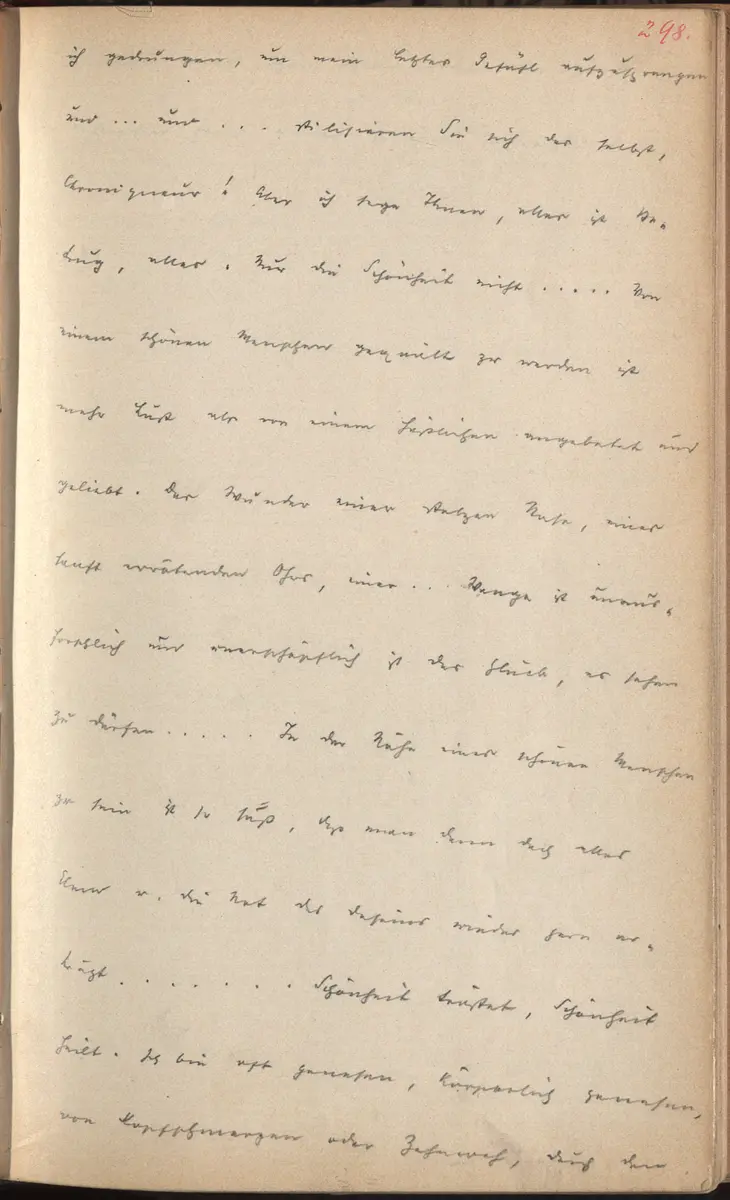 298.
ich gedrungen, um mein letztes Gefühl aufzusprengen
und ... und . . . stilisieren Sie sich das selbst,
Chroniqueur! Aber ich sage Ihnen, alles ist Be-
trug, alles. Nur die Schönheit nicht ..... Von
einem schönen Menschen gequält zu werden ist
mehr Lust als von einem hässlichen angebetet und
geliebt. Das Wunder einer stolzen Nase, eines
sanft errötenden Ohrs, einer ... Wange ist unaus-
forschlich und unerschöpflich ist das Glück, es sehen
zu dürfen ..... In der Nähe eines schönen Menschen
zu sein ist so süß, daß man dann doch alles
Elend u. die Not des Daseins wieder gern er-
trägt ........ Schönheit tröstet, Schönheit
heilt. Ich bin oft genesen, körperlich genesen,
von Kopfschmerzen oder Zahnweh, durch den